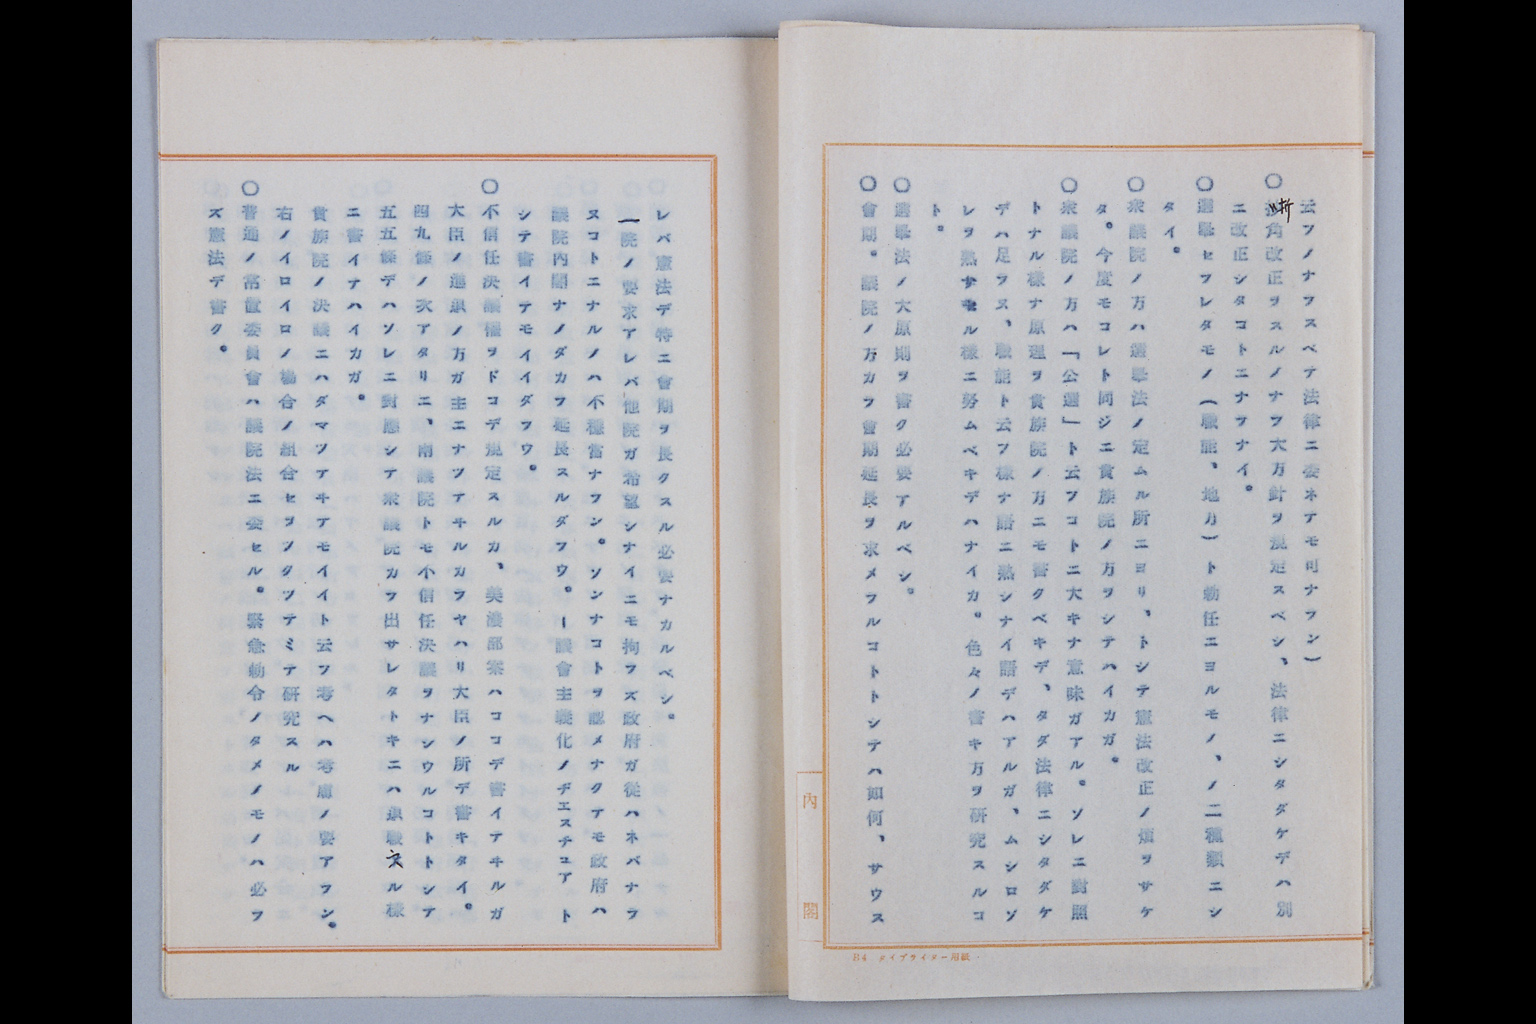 云フノナラスベテ法律ニ委ネテモ可ナラン)
○折角改正ヲスルノナラ大方針ヲ規定スベシ、法律ニシタダケデハ別
ニ改正シタコトニナラナイ。
○選擧セラレタモノ(職能、地方)ト勅任ニヨルモノ、ノ二種類ニシ
タイ。
○衆議院ノ方ハ選擧法ノ定ムル所ニヨリ、トシテ憲法改正ノ煩ヲサケ
タ。今度モコレト同ジニ貴族院ノ方ヲシテハイカガ。
○衆議院ノ方ハ「公選」ト云フコトニ大キナ意味ガアル。ソレニ對照
トナル様ナ原理ヲ貴族院ノ方ニモ書クベキデ、タダ法律ニシタダケ
デハ足ラヌ、職能ト云フ様ナ語ニ熟シナイ語デハアルガ、ムシロソ
レヲ熟サセル様ニ努ムベキデハナイカ。色々ノ書キ方ヲ研究スルコ
ト。
○選擧法ノ大原則ヲ書ク必要アルベシ。
○會期。議院ノ方カラ會期延長ヲ求メラルコトトシテハ如何、サウス
內閣
B4 タイプライター用紙
レバ憲法デ特ニ會期ヲ長クスル必要ナカルベシ。
一院ノ要求アレバ他院ガ希望シナイニモ拘ラズ政府ガ從ハネバナラ
ヌコトニナルノハ不穩當ナラン。ソンナコトヲ認メナクテモ政府ハ
議院内閣ナノダカラ延長スルダラウ。ー議會主義化ノヂエスチユアト
シテ書イテモイイダラウ。
○不信任決議權ヲドコデ規定スルカ、美濃部案ハココデ書イテヰルガ
大臣ノ進退ノ方ガ主ニナツテヰルカラヤハリ大臣ノ所デ書キタイ。
四九條ノ次アタリニ、兩議院トモ不信任決議ヲナシウルコトトシテ
五五條デハソレニ對應シテ衆議院カラ出サレタトキニハ退職スル様
ニ書イテハイカガ。
貴族院ノ決議ニハダマツテヰテモイイト云フ考ヘハ考慮ノ要アラン。
右ノイロイロノ場合ノ組合セヲツクツテミテ研究スル
○普通ノ常置委員會ハ議院法ニ委セル。緊急勅令ノタメノモノハ必ラ
ズ憲法デ書ク。